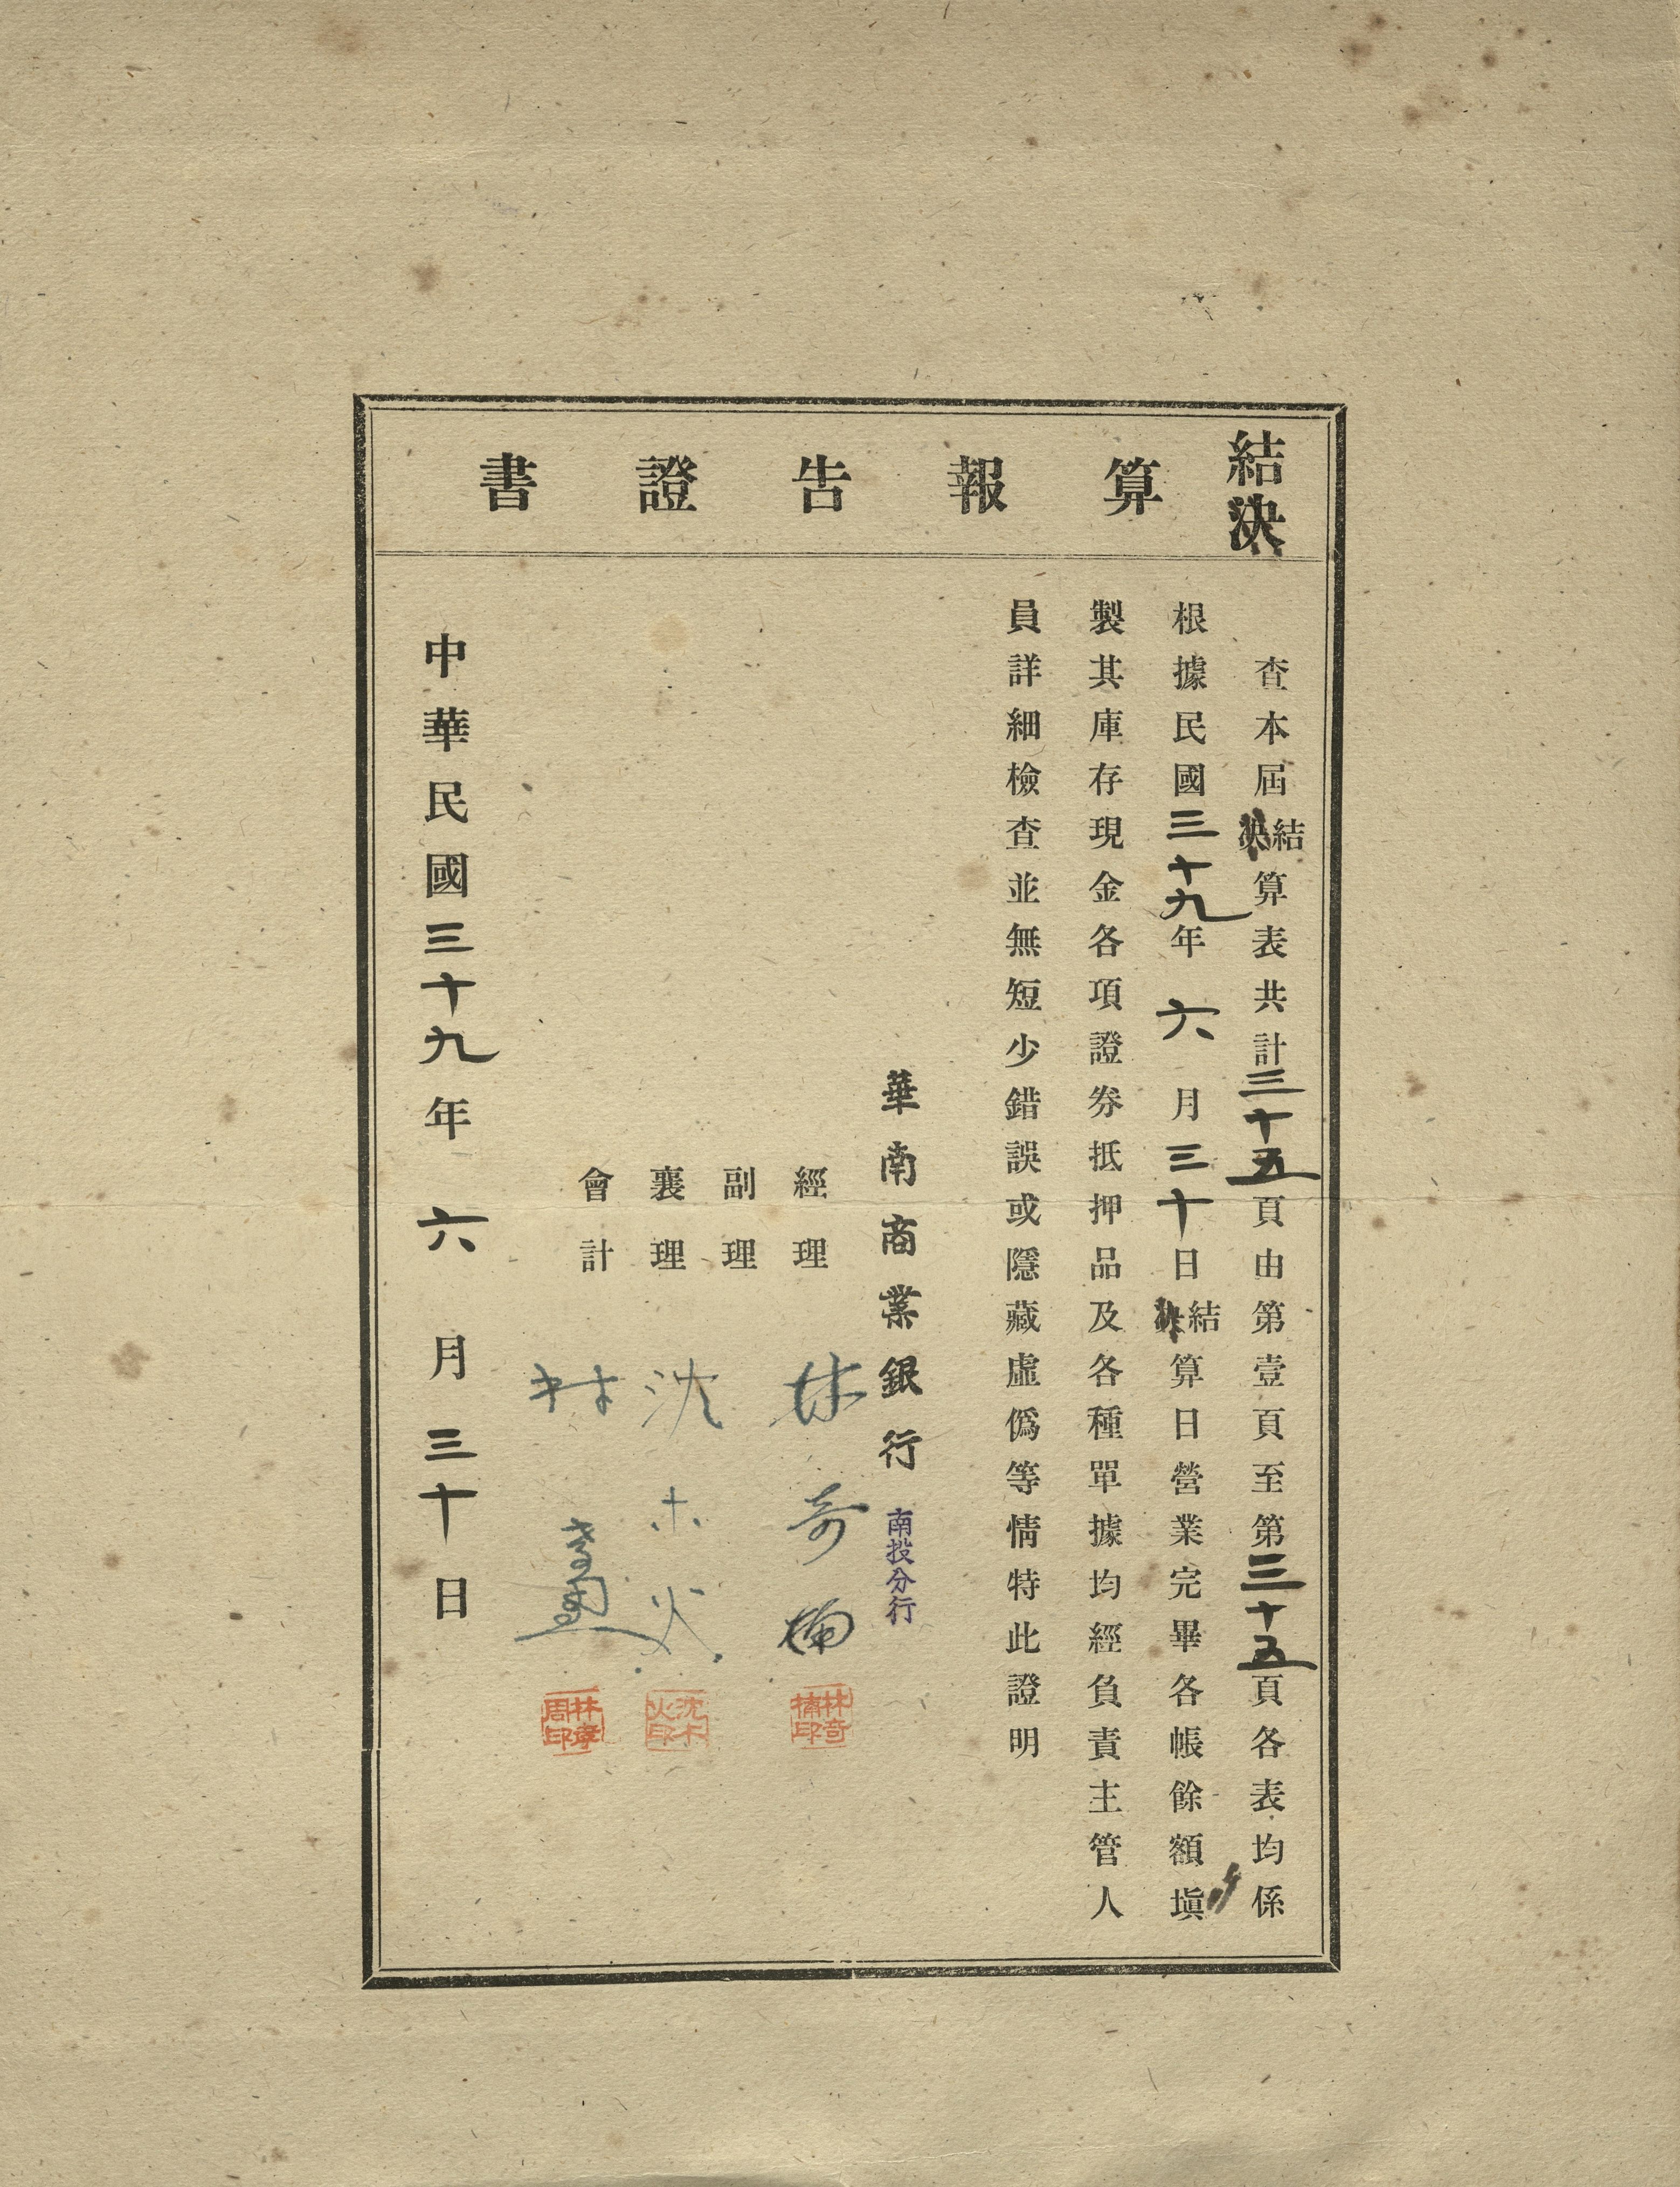 結決算報告證書
查本屆結決算表共計三十五頁由第壹頁至第三十五頁各表均係
根據民國三十九年六月三十日結決算日營業完畢各帳餘額塡
製其庫存現金各項證券抵押品及各種單據均經負責主管人
員詳細檢查並無短少錯誤或隱藏虛僞等情特此證明
華南商業銀行 南投分行
經理 林奇楠 林奇楠印
副理
襄理 沈木火 沈木火印
會計 林孝周 林孝周印
中華民國三十九年六月三十日